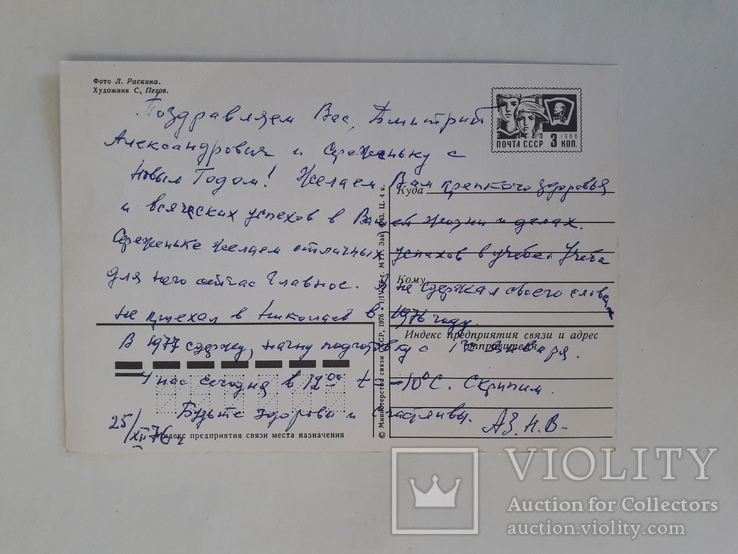 Фото Л. Раскина.
Художник С. Пегов.
1966
ПОЧТА СССР 3 КОП.
Поздравляем Вас, Дмитрий
Александрович и Сереженьку с
Новым Годом! Желаем Вам крепкого здоровья
Куда
и всяческих успехов в Вашей жизни и делах.
Сереженьке желаем отличных успехов в учебе. Учеба
для него сейчас Главное. Я не сдержал своего слова,
Кому
не приехал в Николаев в 1976 году.
Индекс предприятия связи и адрес
отправителя
В 1977 сдержу, начну подготовку с 1го января.
У нас сегодня в 12 00 t = -10°С. Скрипим.
Будьте здоровы и счастливы.
25/XII 76 г
АЗ. Н. В-
Индекс предприятия связи места назначения
© Министерство связи СССР, 1976
VIOLITY
Auction for Collectors
auction.violity.com